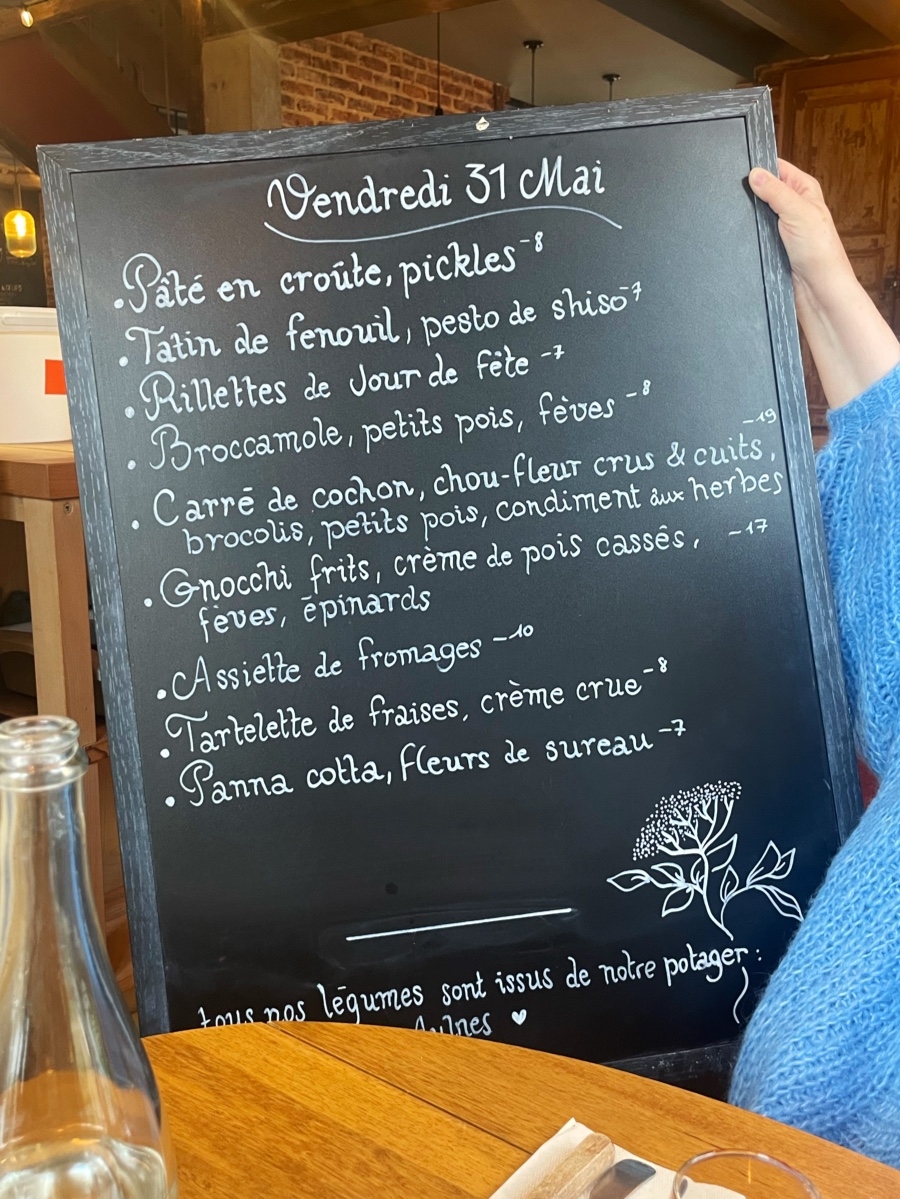 Vendredi 31 Mai
• Pâté en croûte, pickles -8
• Tatin de fenouil, pesto de shiso -7
• Rillettes de Jour de fête -7
• Broccamole, petits pois, fèves -8
• Carré de cochon, chou-fleur crus & cuits, -19
brocolis, petits pois, condiment aux herbes
• Gnocchi frits, crème de pois cassés, -17
fèves, épinards
• Assiette de fromages -10
• Tartelette de fraises, crème crue -8
• Panna cotta, fleurs de sureau -7
tous nos légumes sont issus de notre potager :
♥